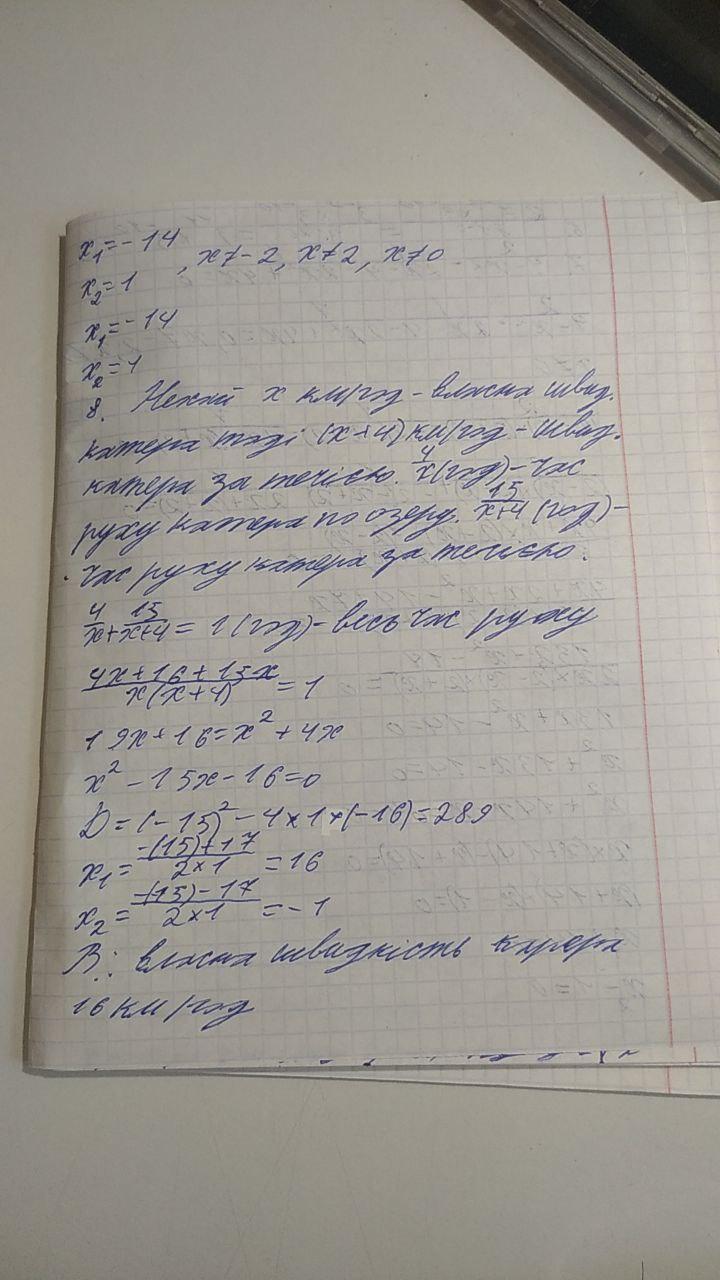 x₁=-14
, x≠-2, x≠2, x≠0
x₂=1
x₁=-14
x₂=1
8. Нехай x км/год - власна швид.
катера тоді (x+4) км/год - швид.
катера за течією. 4/x (год) - час
руху катера по озеру. 15/x+4 (год) -
час руху катера за течією.
4/x + 15/x+4 = 1 (год) - весь час руху
4x+16+15x / x(x+4) = 1
19x+16=x²+4x
x²-15x-16=0
D=(-15)²-4×1×(-16)=289
x₁= -(15)+17 / 2×1 =16
x₂= -(15)-17 / 2×1 =-1
В: власна швидкість
16 км/год